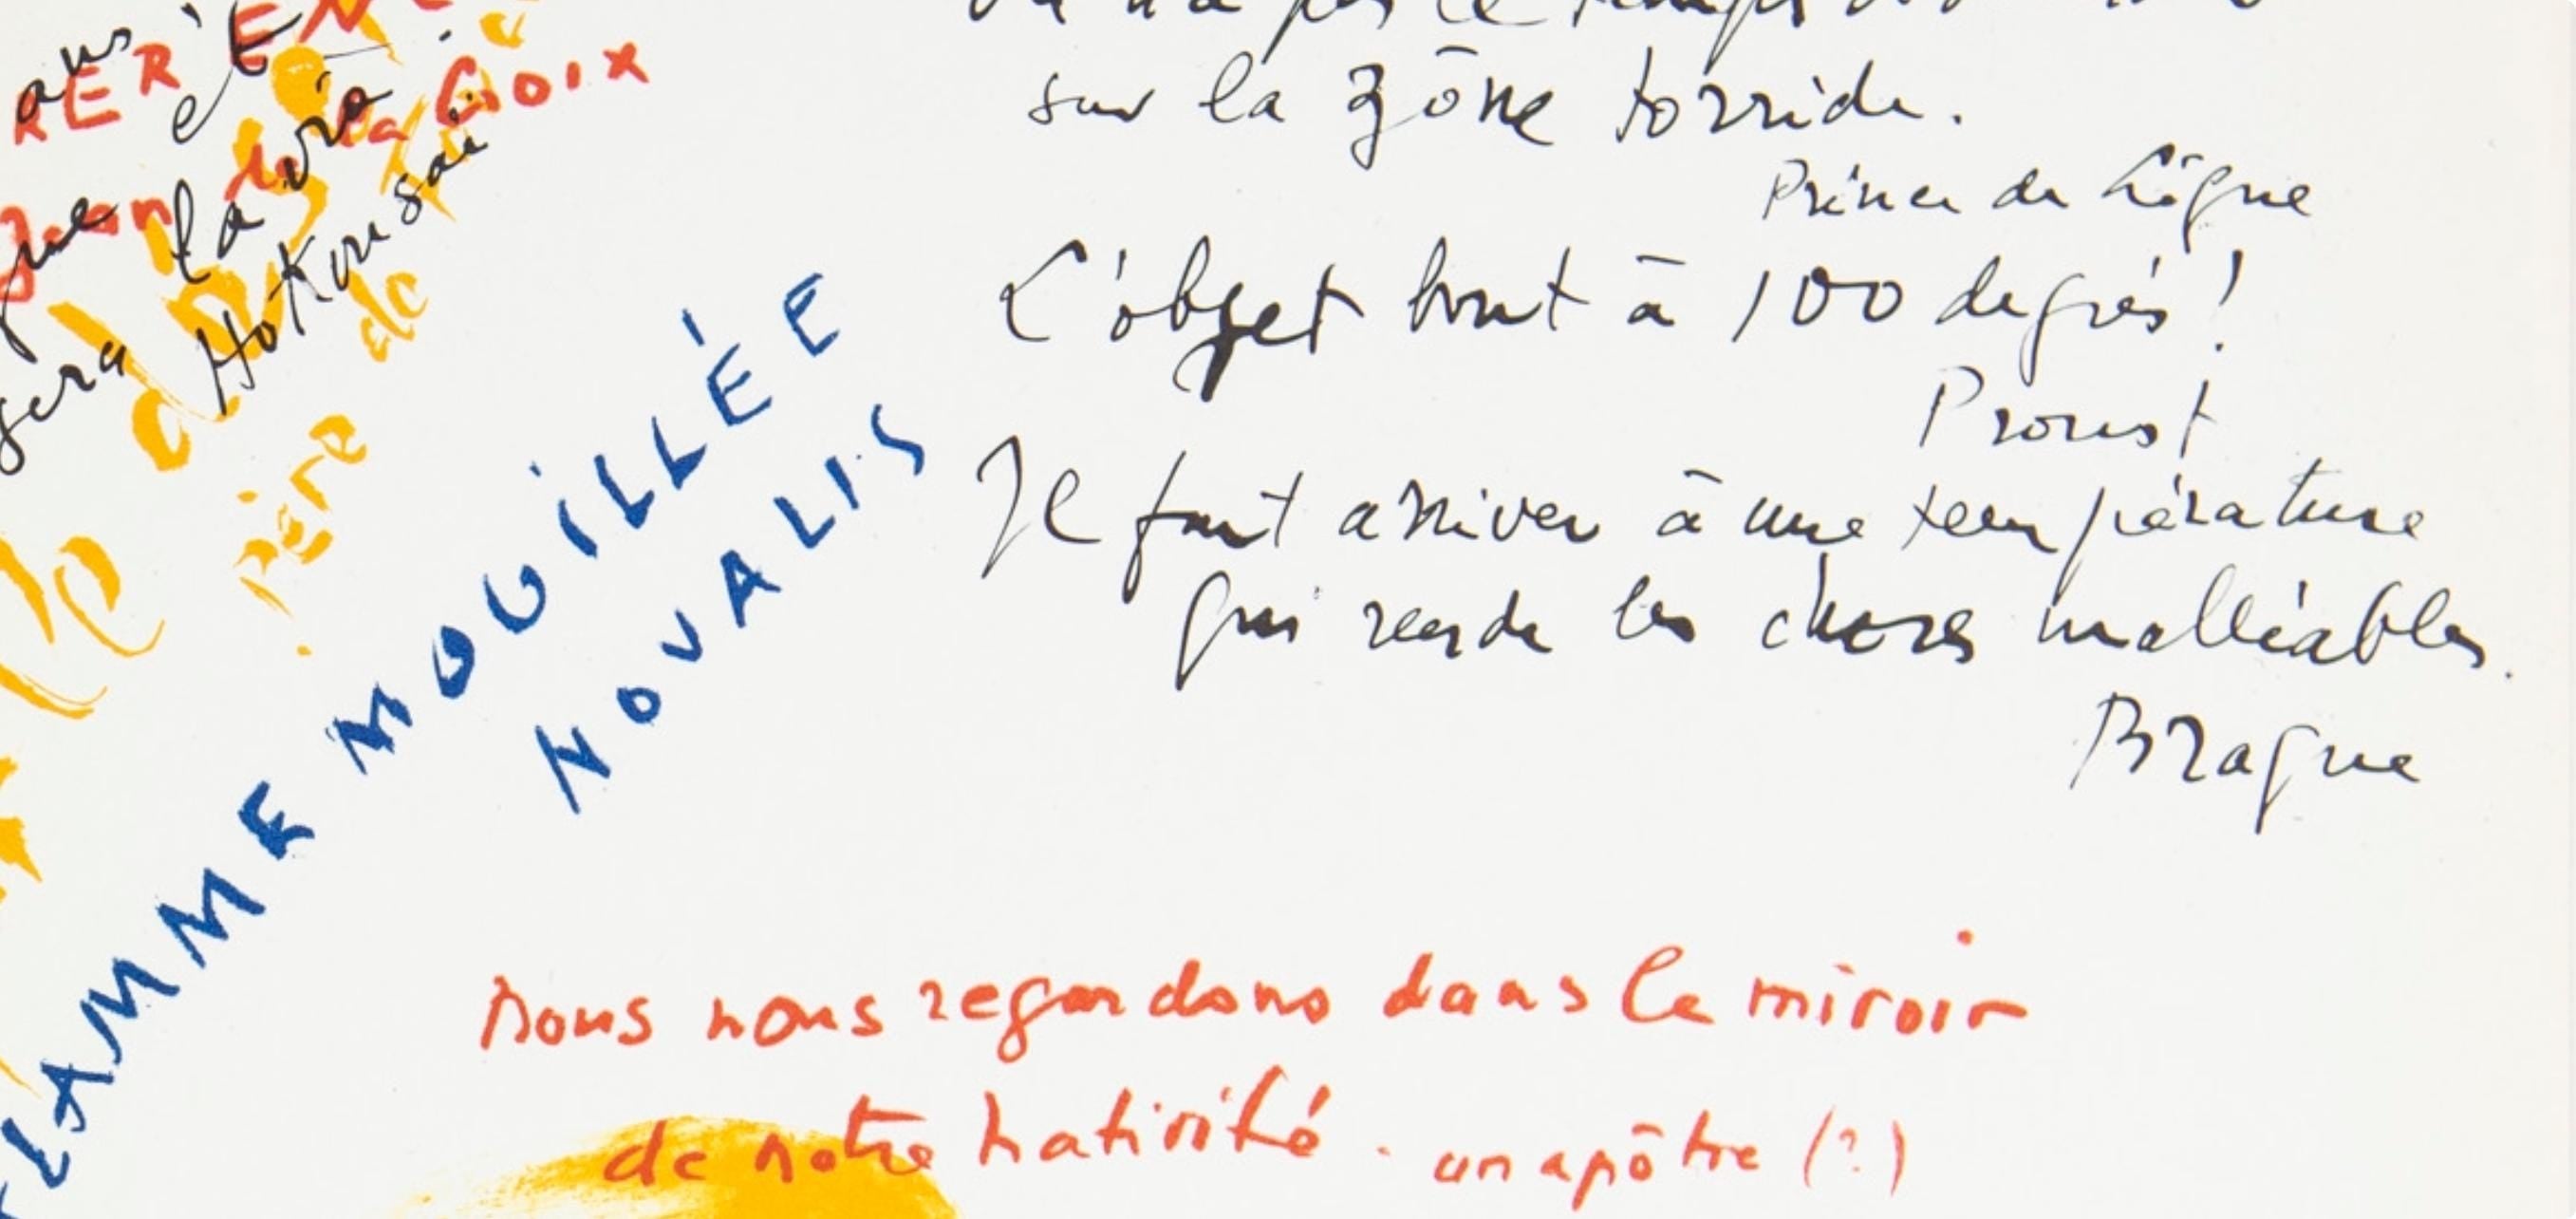 sur la zōne torride.
Prince de Ligne
L'objet bout à 100 degrés!
Proust
Il faut arriver à une température
qui rende les choses malléables.
Braque
ans
la vie
que
sera
Hokousai
Jean de la Croix
de
père
LAMME MOUILLÉE
NOVALIS
Nous nous regardons dans le miroir
de notre nativité. un apōtre (?)